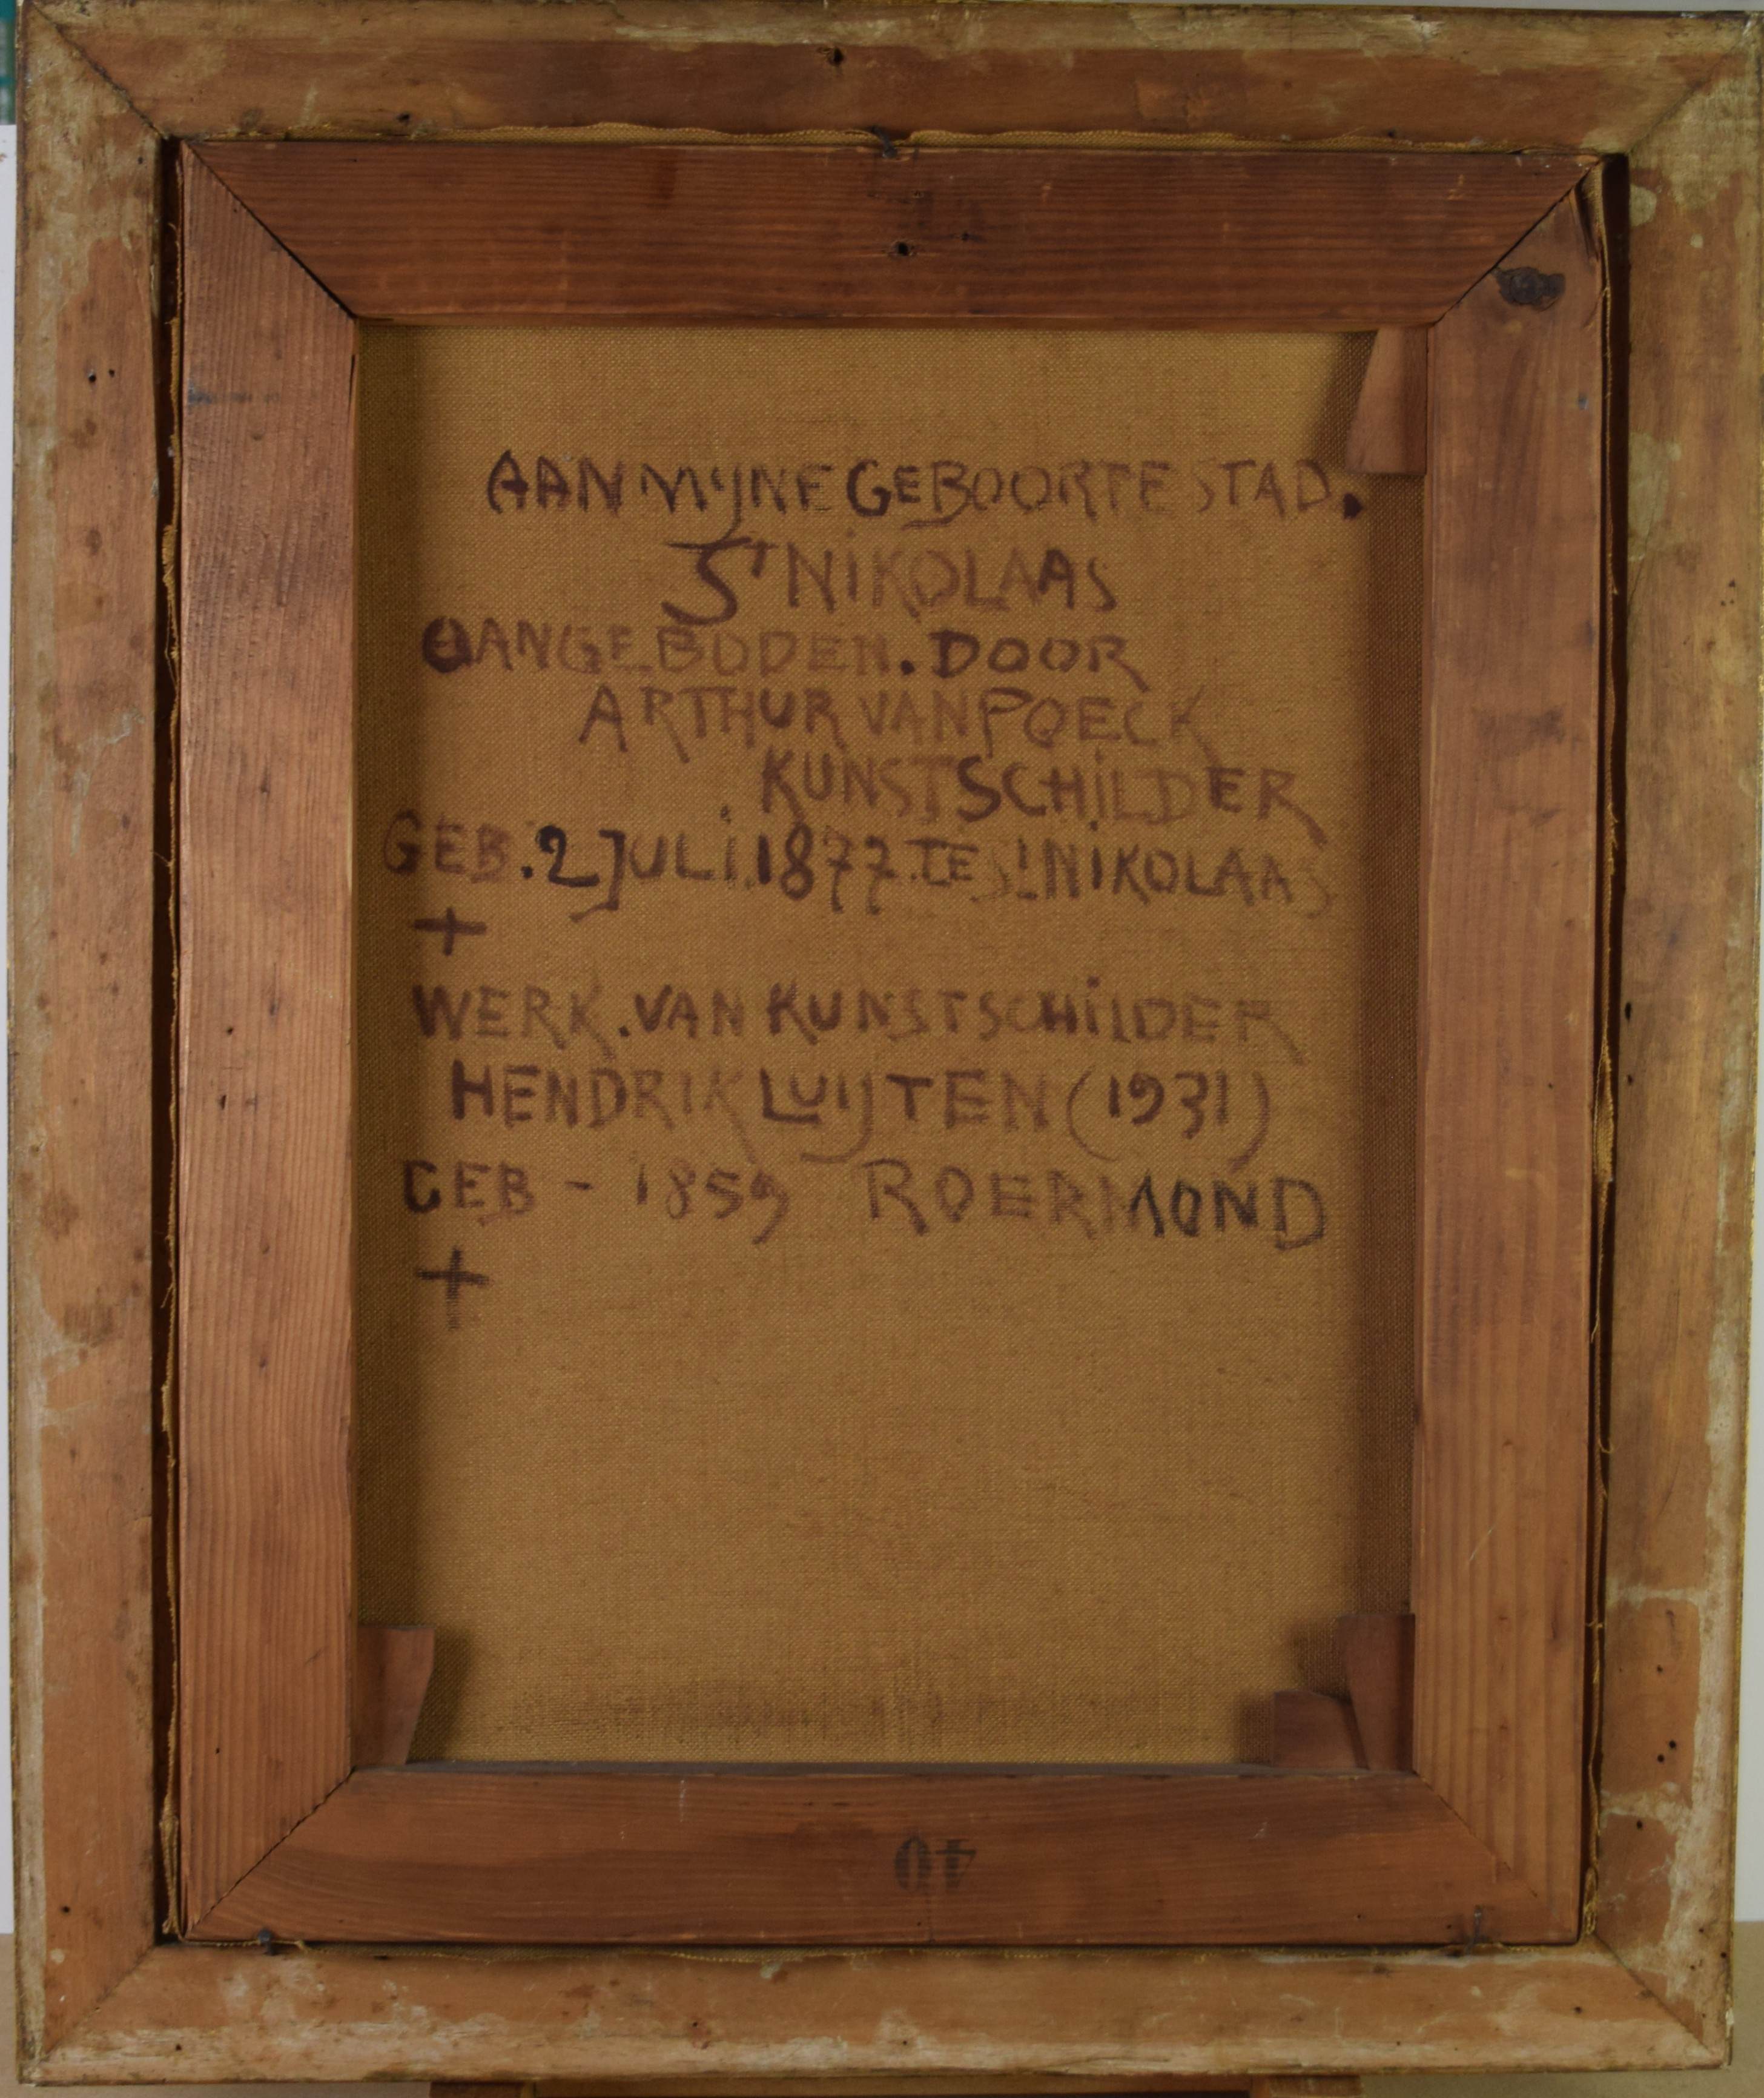 AAN MIJNE GEBOORTESTAD.
ST NIKOLAAS
AANGEBODEN. DOOR
ARTHUR VAN POECK
KUNSTSCHILDER
GEB. 2 JULI. 1877. TE ST NIKOLAAS
+
WERK. VAN KUNSTSCHILDER
HENDRIK LUIJTEN (1931)
GEB - 1859 ROERMOND
+
40